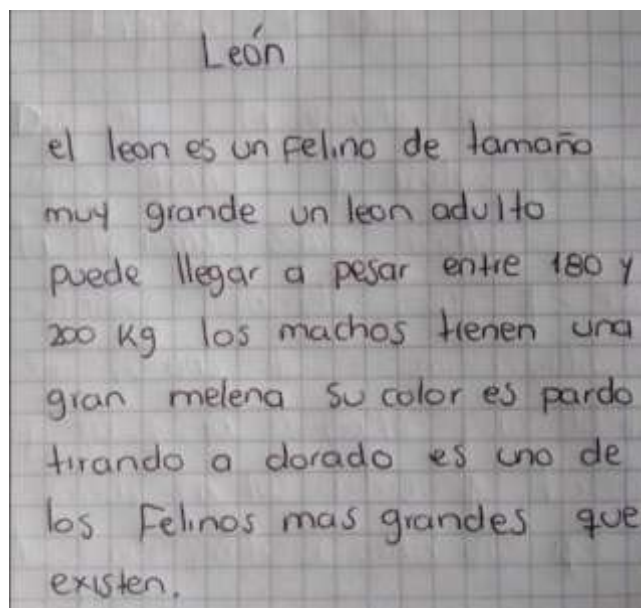 León
el leon es un felino de tamaño
muy grande un leon adulto
puede llegar a pesar entre 180 y
200 Kg los machos tienen una
gran melena su color es pardo
tirando a dorado es uno de
los Felinos mas grandes que
existen.